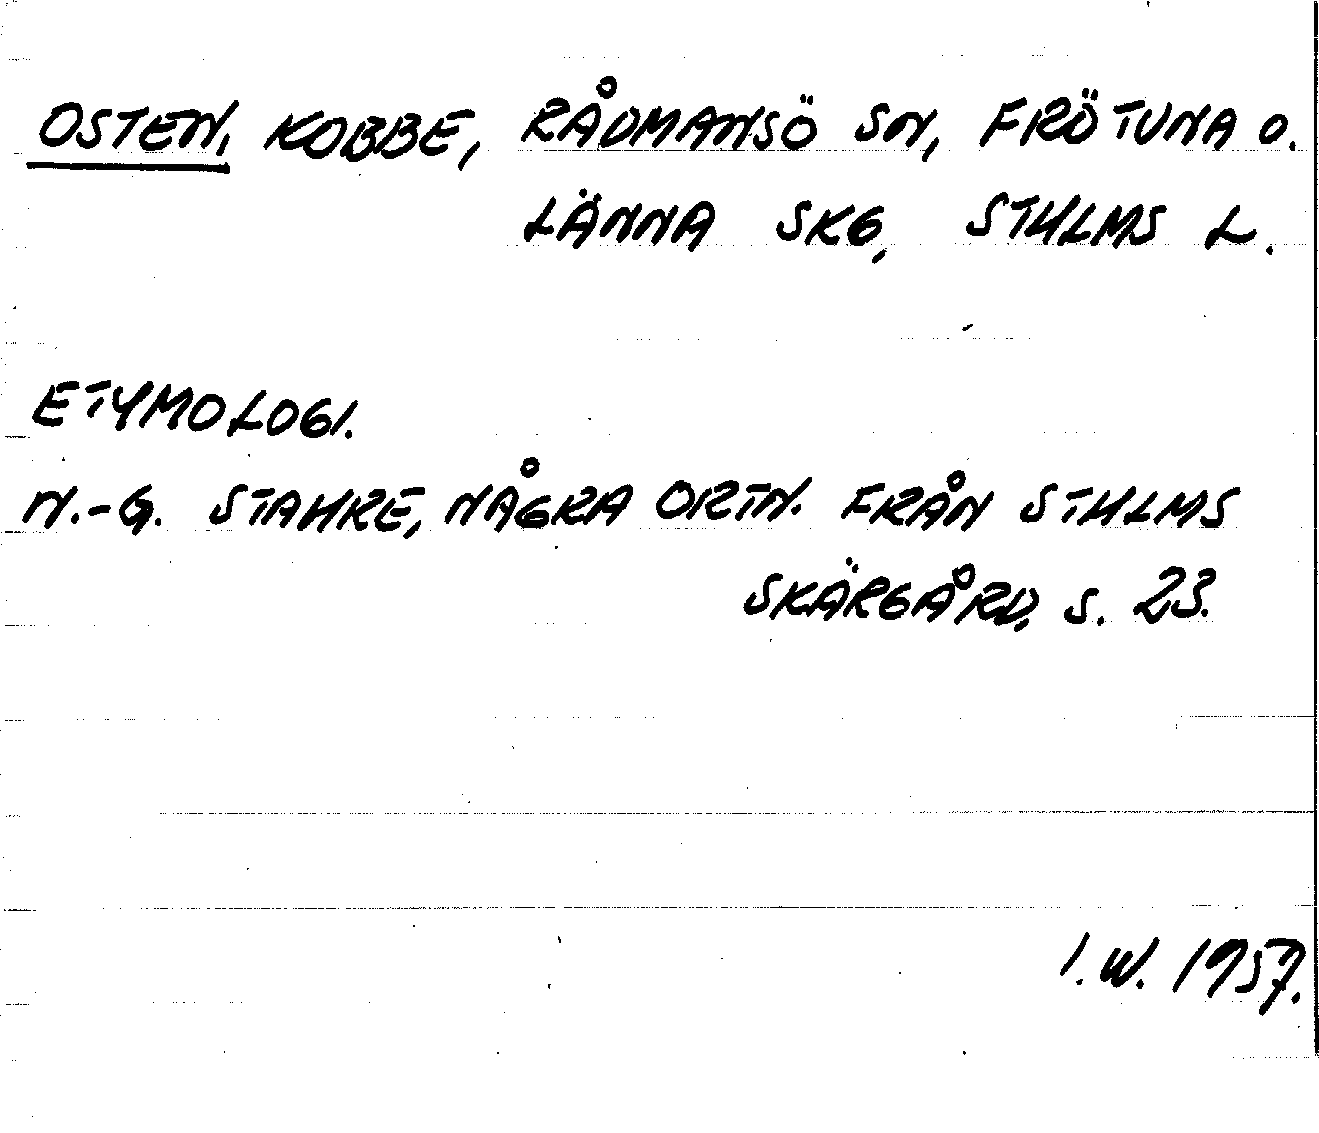 OSTEN, KOBBE, RÅDMANSÖ SN, FRÖTUNA O.
LÄNNA SKG, STHLMS L.
ETYMOLOGI.
N.-G. STAHRE, NÅGRA ORTN. FRÅN STHLMS
SKÄRGÅRD, S. 23.
I.W. 1957.